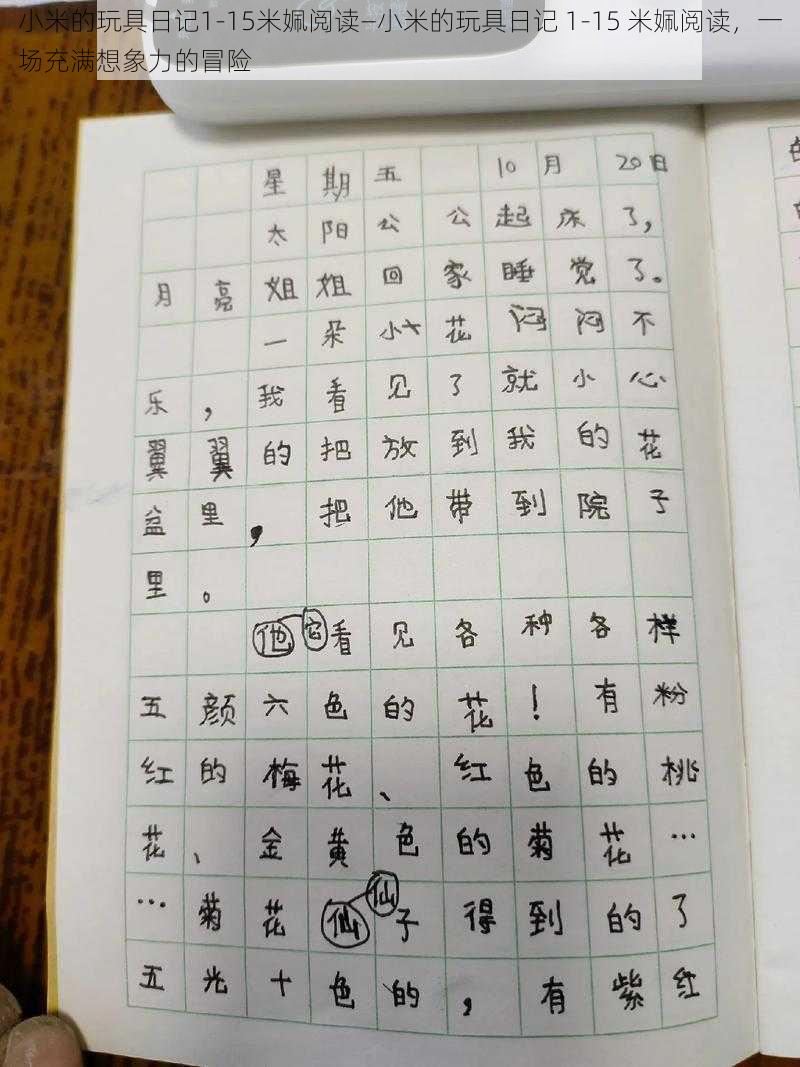 小米的玩具日记1-15米姵阅读—小米的玩具日记 1-15 米姵阅读，一
场充满想象力的冒险
星期五 10月 20日
太阳公公起床了，
月亮姐姐回家睡觉了。
一朵小花闷闷不
乐，我看见了就小心
翼翼的把放到我的花
盆里，把他带到院子
里。
他它看见各种各样
五颜六色的花！有粉
红的梅花、红色的桃
花、金黄色的菊花…
…菊花仙仙子得到的了
五光十色的，有紫红